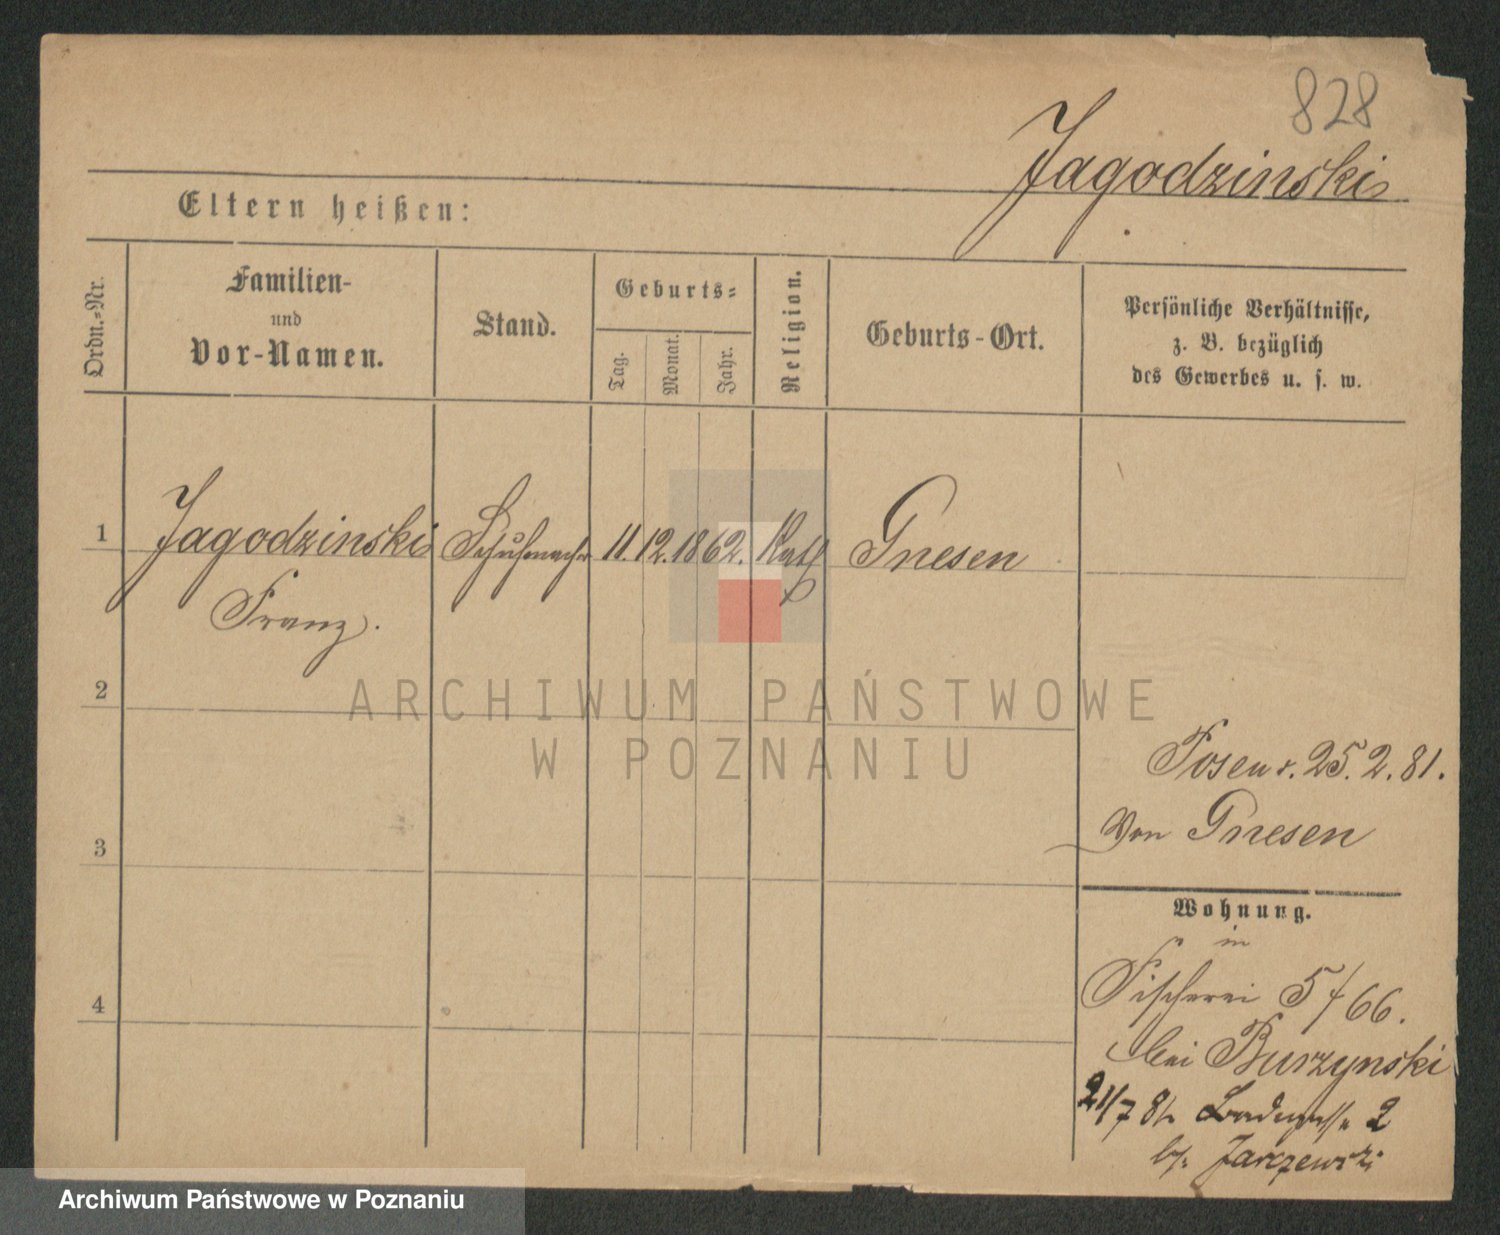 828
Jagodzinski
Eltern heißen:
Ordn.-Nr.
Familien-
und
Vor-Namen.
Stand.
Geburts-
Tag.
Monat.
Jahr.
Religion.
Geburts-Ort.
Persönliche Verhältnisse,
z. B. bezüglich
des Gewerbes u. s. w.
1
Jagodzinski
Franz.
Schuhmacher
11. 12. 1862.
Kath
Gnesen
2
Posen 25. 2. 81.
von Gnesen
3
Wohnung.
in
Fischerei 5/66.
bei Burzynski
4
21/7 81 2
b/. Jarczewski
ARCHIWUM PAŃSTWOWE
W POZNANIU
Archiwum Państwowe w Poznaniu